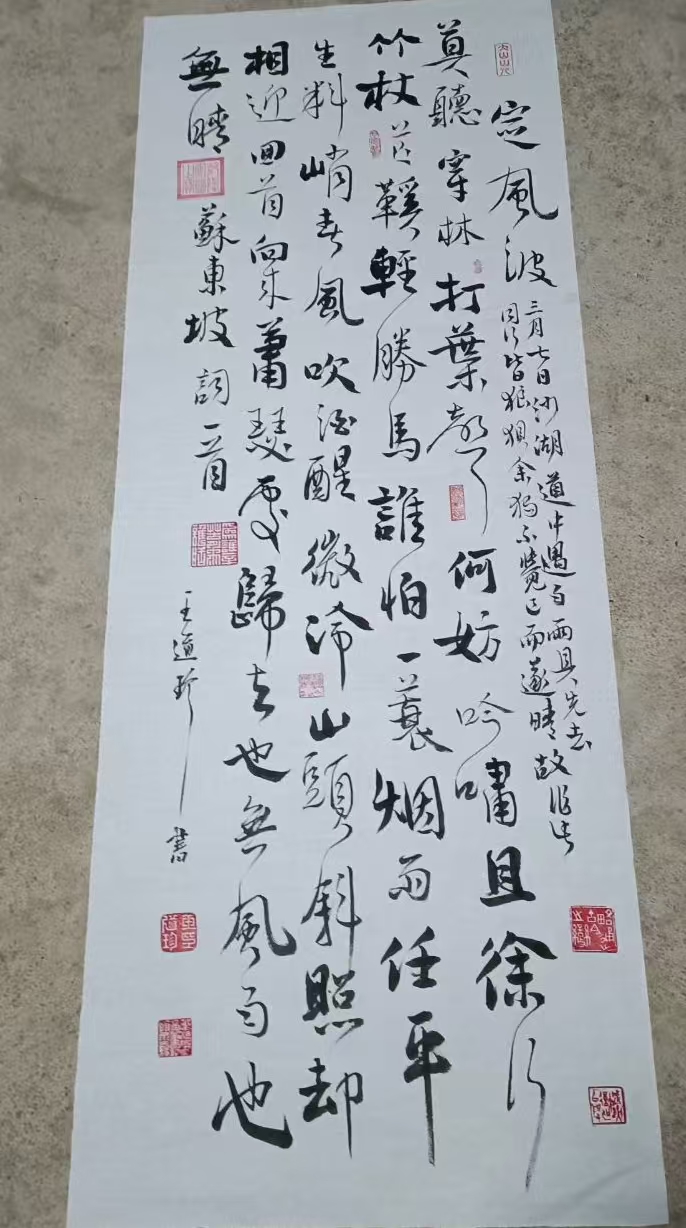 定風波
三月七日沙湖道中遇雨雨具先去
同行皆狼狽余獨不覺已而遂晴故作此
莫聽穿林打葉聲何妨吟嘯且徐行
竹杖芒鞵輕勝馬誰怕一蓑烟雨任平
生料峭春風吹酒醒微冷山頭斜照却
相迎回首向來蕭瑟處歸去也無風雨也
無晴
蘇東坡詞一首
王道珍書